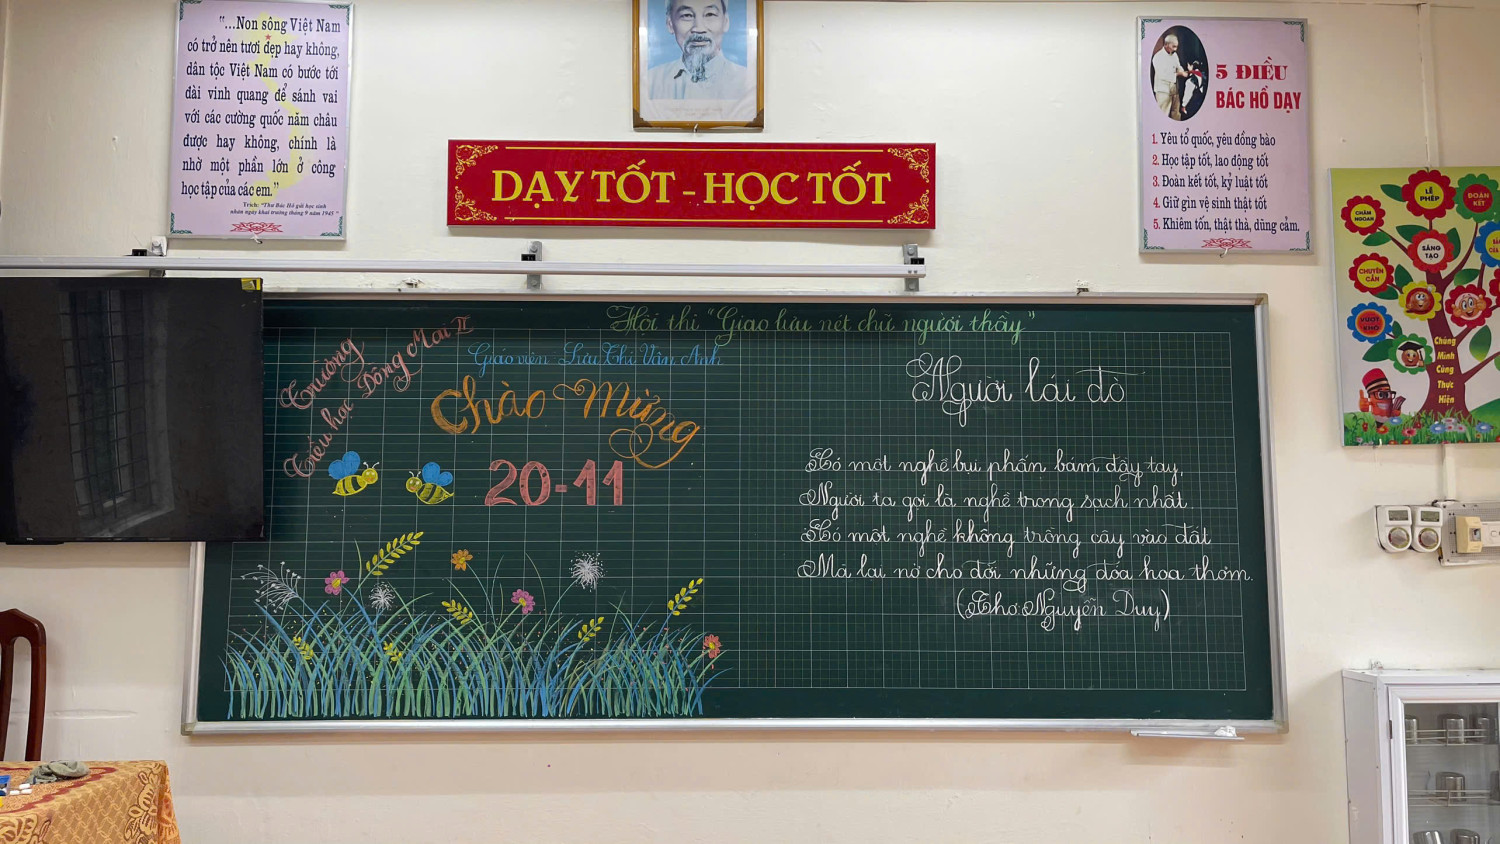 “...Non sông Việt Nam
có trở nên tươi đẹp hay không,
dân tộc Việt Nam có bước tới
đài vinh quang để sánh vai
với các cường quốc năm châu
được hay không, chính là
nhờ một phần lớn ở công
học tập của các em.”
Trích: “Thư Bác Hồ gửi học sinh
nhân ngày khai trường tháng 9 năm 1945”
DẠY TỐT - HỌC TỐT
5 ĐIỀU
BÁC HỒ DẠY
1. Yêu tổ quốc, yêu đồng bào
2. Học tập tốt, lao động tốt
3. Đoàn kết tốt, kỷ luật tốt
4. Giữ gìn vệ sinh thật tốt
5. Khiêm tốn, thật thà, dũng cảm.
LỄ PHÉP
ĐOÀN KẾT
CHĂM NGOAN
SÁNG TẠO
CHUYÊN CẦN
VƯỢT KHÓ
Chúng
Mình
Cùng
Thực
Hiện
Hội thi “Giao lưu nét chữ người thầy”
Trường
Tiểu học Đồng Mai II
Giáo viên Lưu Thị Vân Anh
Chào Mừng
20-11
Người lái đò
Có một nghề bụi phấn bám đầy tay,
Người ta gọi là nghề trong sạch nhất.
Có một nghề không trồng cây vào đất
Mà lại nở cho đời những đóa hoa thơm.
(Thơ: Nguyễn Duy)